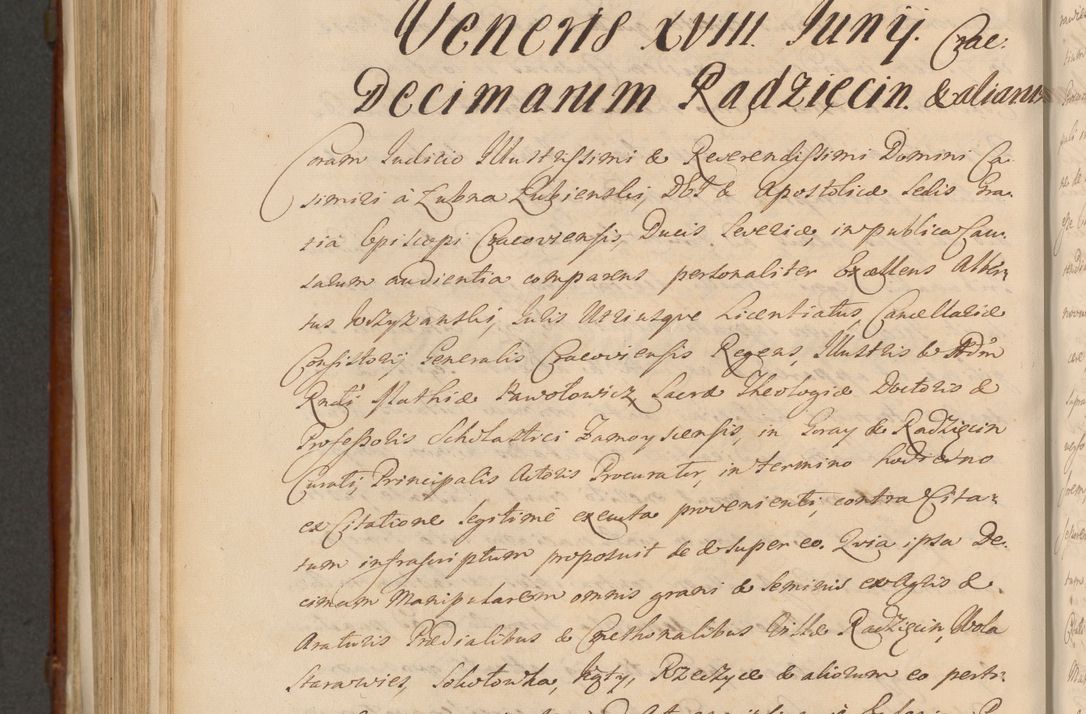 Veneris XVIII. Junij. Crae.
Decimarum Radzięcin. & aliarum
Coram Judicio Illustrissimi & Reverendissimi Domini Ca
simiri à Łubna Łubienski, D & Apostolicæ Sedis Gra-
tia Episcopi Cracoviensis, Ducis Severiæ, in publica Cau-
sarum audientia comparens personaliter Excellens Alber-
tus Juris Utriusque Licentiatus, Cancellariæ
Consistorij Generalis Cracoviensis Regens, Illustris & Adm
Rndi Mathiæ Pawołowicz, Sacræ Theologiæ Doctoris &
Professoris Scholastici Zamoyscensis, in Goray & Radzięcin
Curati, Principalis Actoris Procurator, in termino hodierno
ex Citatione legitimè executa provenienti, contra Cita-
tum infrascriptum proposuit de & super eo. Quia ipsa De-
cimam Manipularem omnis grani & seminis ex Agris &
Araturis Prædialibus & Cmethonalibus Villæ Radzięcin, Wola
Starawies, Sokołowka, Kąty, Rzeczyce & aliorum eo perti-